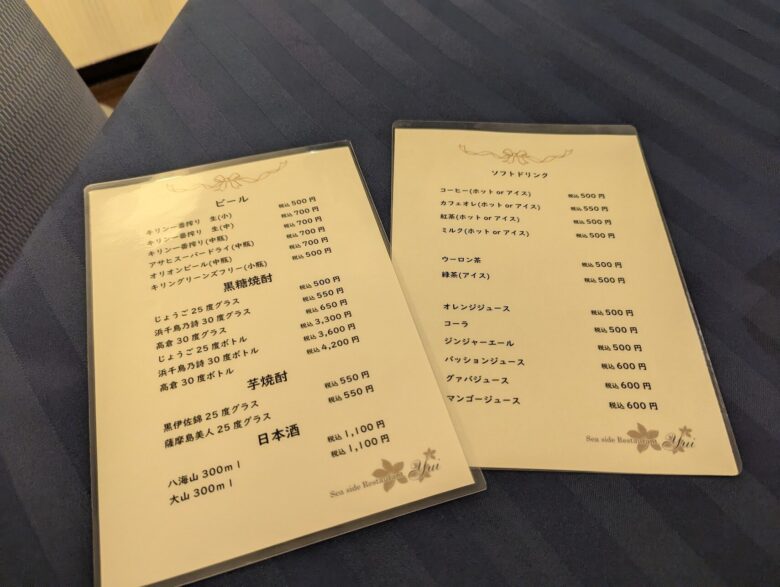 ビール
キリン一番搾り 生(小) 税込500円
キリン一番搾り 生(中) 税込700円
キリン一番搾り(中瓶) 税込700円
アサヒスーパードライ(中瓶) 税込700円
オリオンビール(中瓶) 税込700円
キリングリーンズフリー(小瓶) 税込500円
黒糖焼酎
じょうご25度グラス 税込500円
浜千鳥乃詩30度グラス 税込550円
高倉30度グラス 税込650円
じょうご25度ボトル 税込3,300円
浜千鳥乃詩30度ボトル 税込3,600円
高倉30度ボトル 税込4,200円
芋焼酎
黒伊佐錦25度グラス 税込550円
薩摩島美人25度グラス 税込550円
日本酒
八海山300ml 税込1,100円
大山300ml 税込1,100円
Sea side Restaurant Yui
ソフトドリンク
コーヒー(ホットorアイス) 税込500円
カフェオレ(ホットorアイス) 税込550円
紅茶(ホットorアイス) 税込500円
ミルク(ホットorアイス) 税込500円
ウーロン茶 税込500円
緑茶(アイス) 税込500円
オレンジジュース 税込500円
コーラ 税込500円
ジンジャーエール 税込500円
パッションジュース 税込600円
グァバジュース 税込600円
マンゴージュース 税込600円
Sea side Restaurant Yui